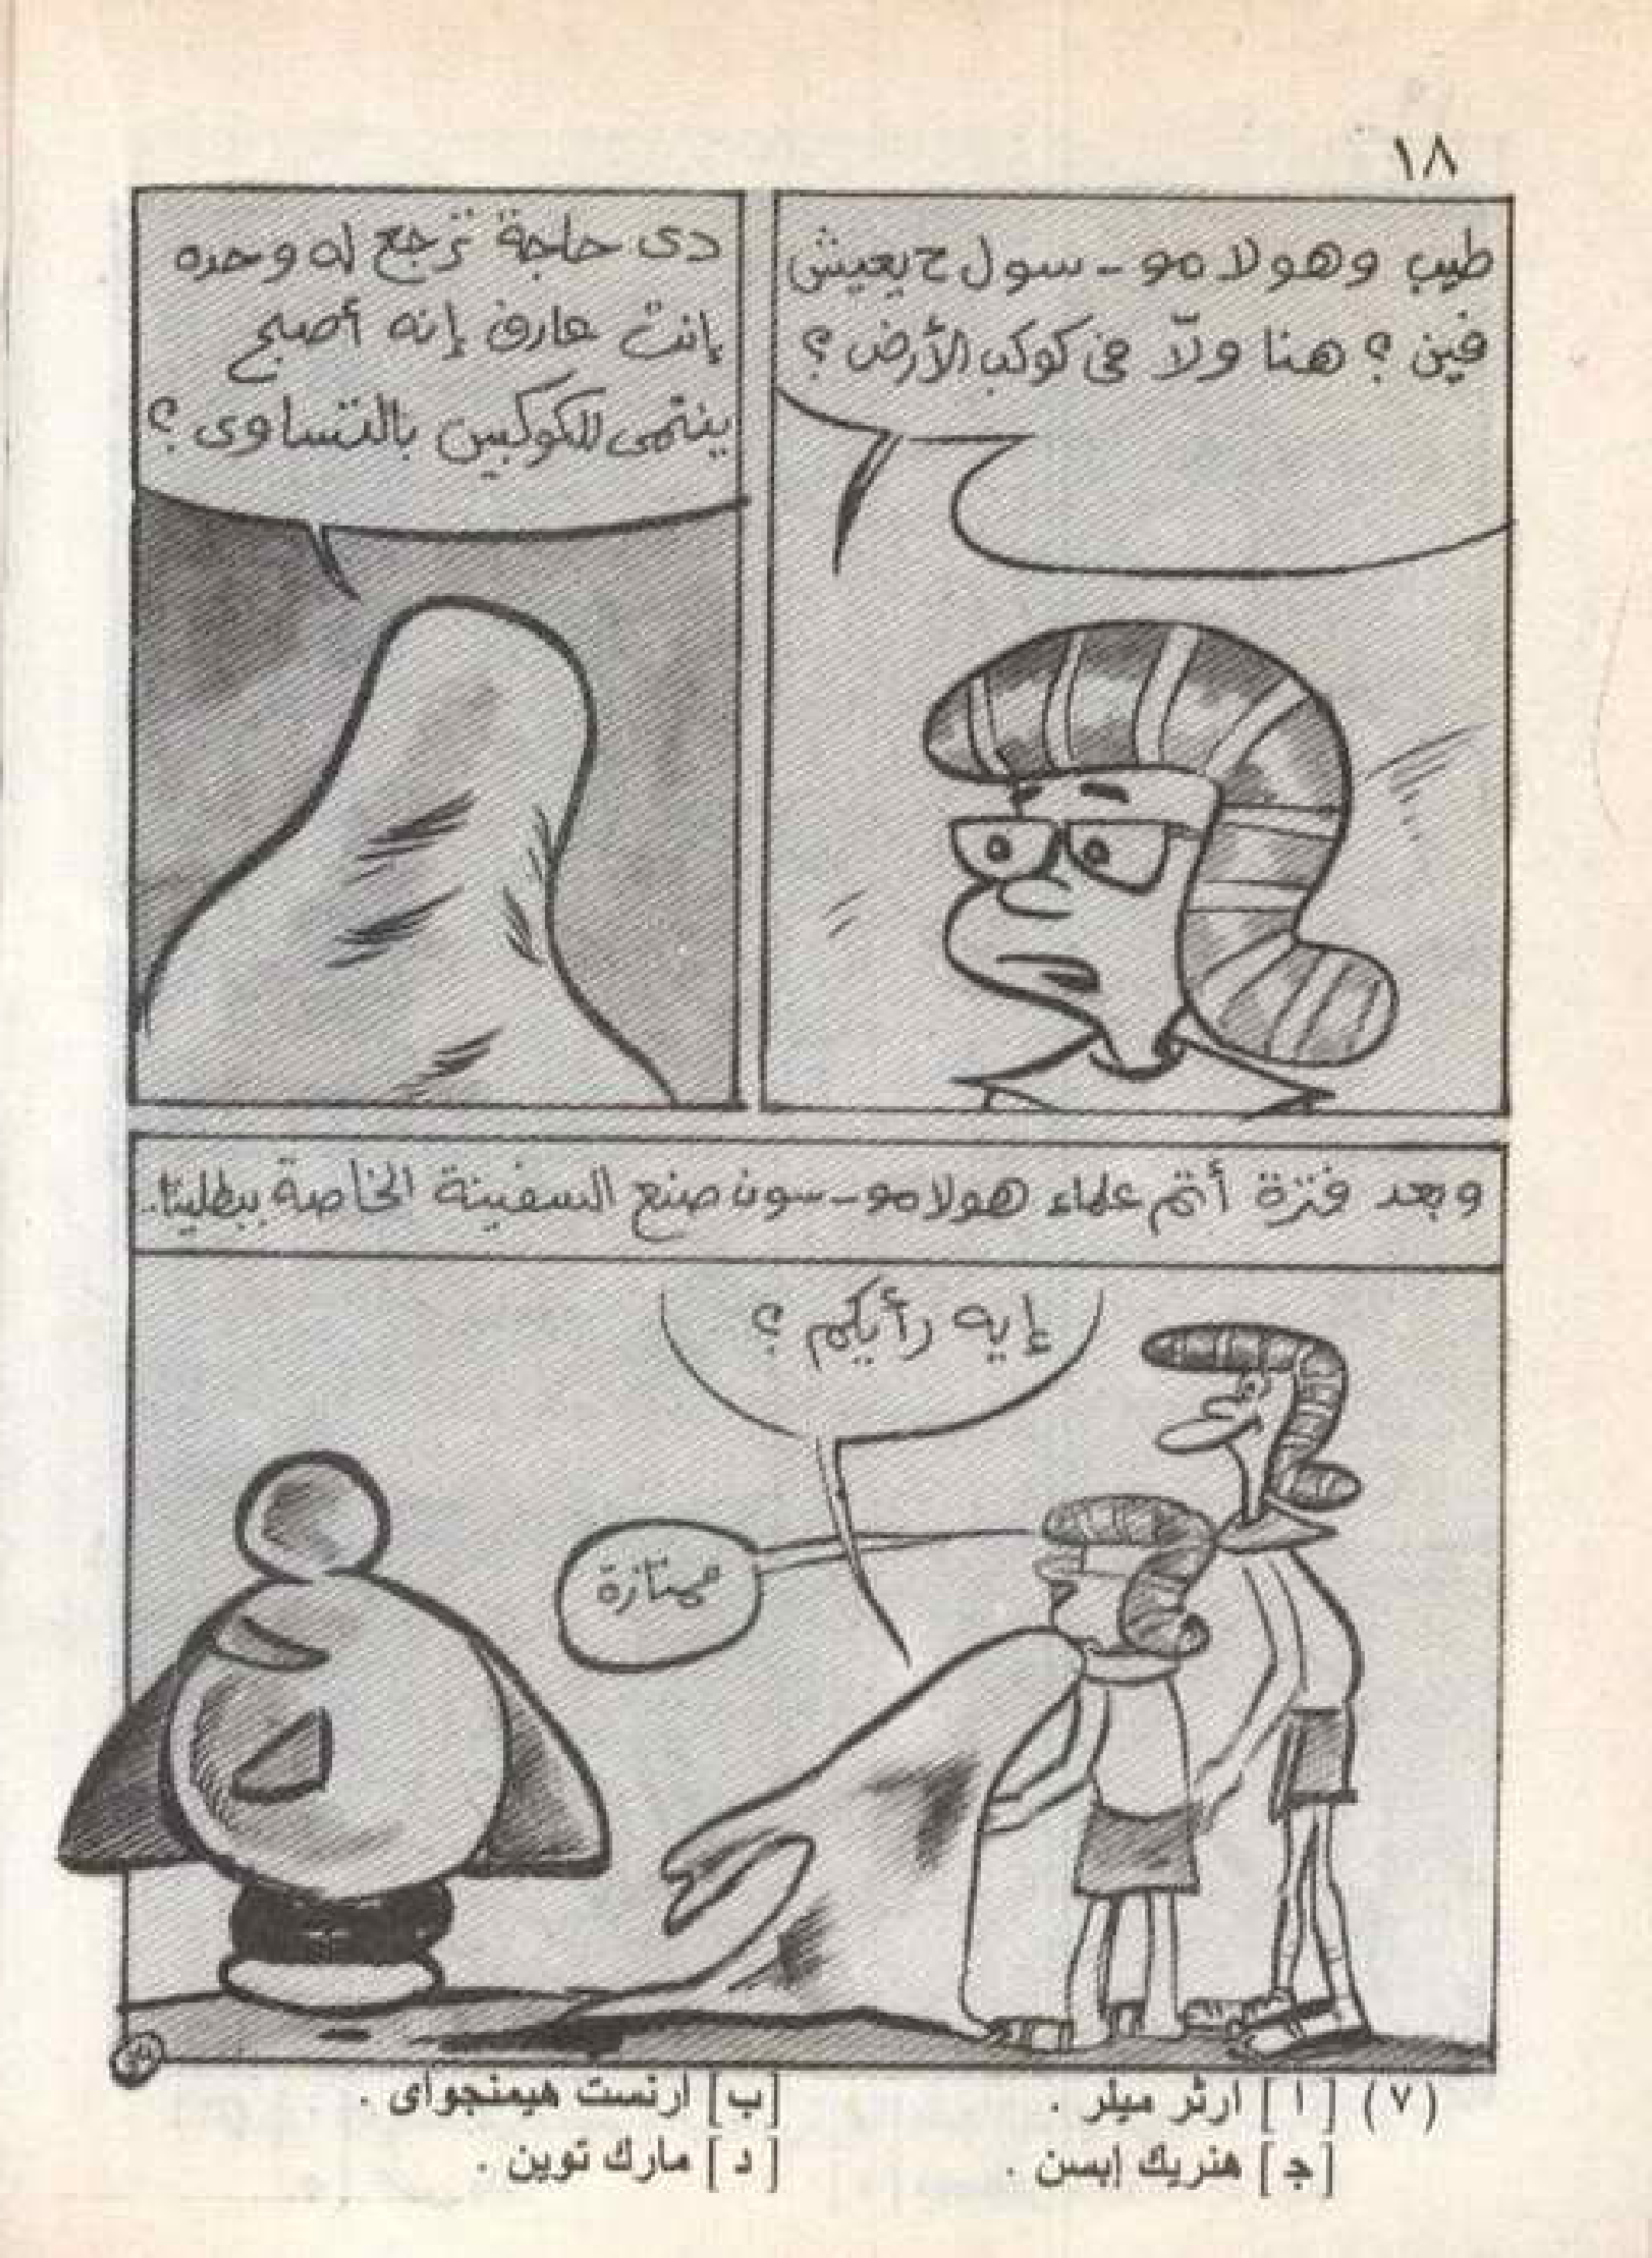 ١٨
طيب وهولامو - سول ح يعيش
فين ؟ هنا ولّا فى كوكب الأرض ؟
دى حاجة ترجع له وحده
إنت عارف إنه أصبح
ينتمى للكوكبين بالتساوى ؟
وبعد فترة أتم علماء هولامو - سون صنع السفينة الخاصة ببطلينا..
إيه رأيكم ؟
ممتازة
(٧) [ ا ] ارثر ميلر . [ب] ارنست هيمنجواى .
[ج] هنريك إبسن . [ د ] مارك توين .